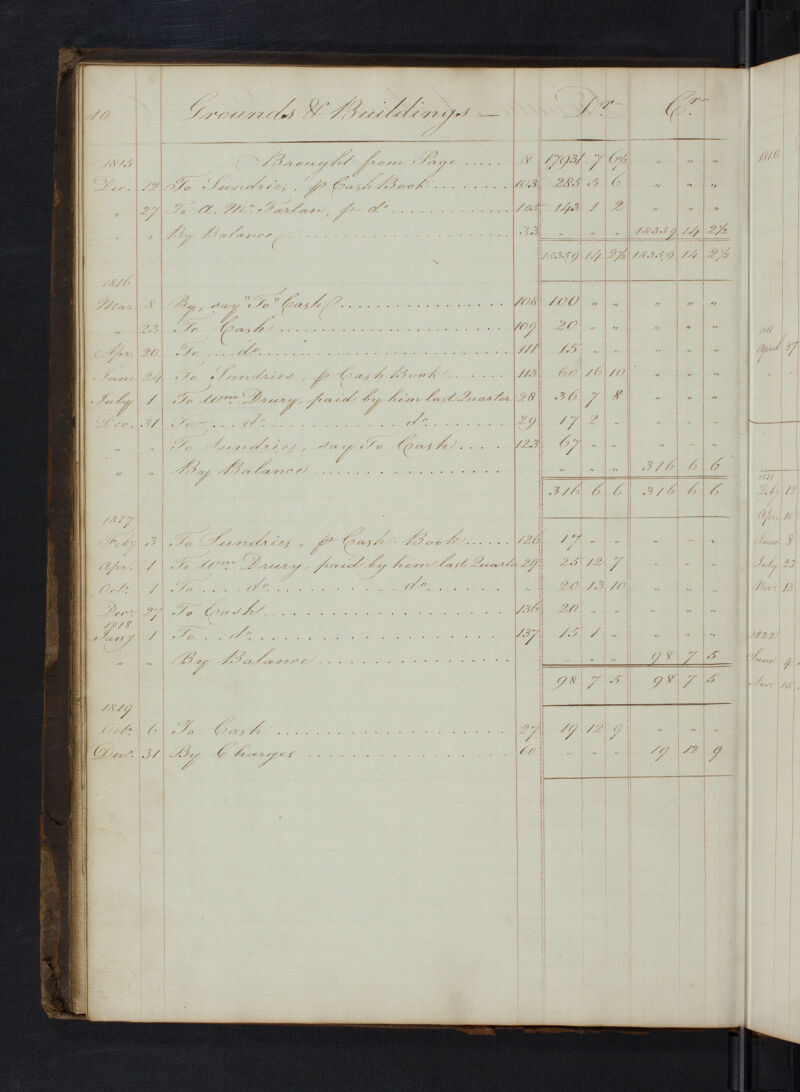 10 Grounds & Buildings — Dr Cr
1815 Brought from Page ..... 8 17931 7 6½ " " "
Dec. 12 To Sundries, p Cash Book ........ 103 285 5 6 " " "
" 27 To A. Mc Farlan, p do ............ 105 143 1 2 " " "
" " By Balance ........................ 33 " " " 18359 14 2½
18359 14 2½ 18359 14 2½
1816
Mar. 8 By, say "To" Cash ................ 108 100 " " " " "
" 23 To Cash ........................ 109 20 " " " " "
Apr. 20 To .... do ........................ 111 15 " " " " "
June 24 To Sundries, p Cash Book ...... 113 60 16 10 " " "
July 1 To Wm. Drury, paid by him last Quarter 28 36 7 8 " " "
Dec. 31 To .... do .............. do ........ 29 17 2 " " " "
" " To Sundries, say To Cash .... 123 67 " " " " "
" " By Balance .................. " " " 316 6 6
316 6 6 316 6 6
1817
Feby 3 To Sundries, p Cash Book ..... 126 17 " " " " "
Apr. 1 To Wm. Drury, paid by him last Quarter 29 25 12 7 " " "
Octr. 1 To .... do .............. do ........ " 20 13 10 " " "
Decr. 27 To Cash ........................ 136 20 " " " " "
1818
Jany 1 To ... do ........................ 137 15 1 " " " "
" " By Balance .................. " " " 98 7 5
98 7 5 98 7 5
1819
Octr. 6 To Cash ........................ 27 19 12 9 " " "
Decr. 31 By Charges .................. 60 " " " 19 12 9
1818
April 27
1821
Feby 12
Apr. 10
June 8
July 23
Nov. 13
1822
June 4
Nov. 15